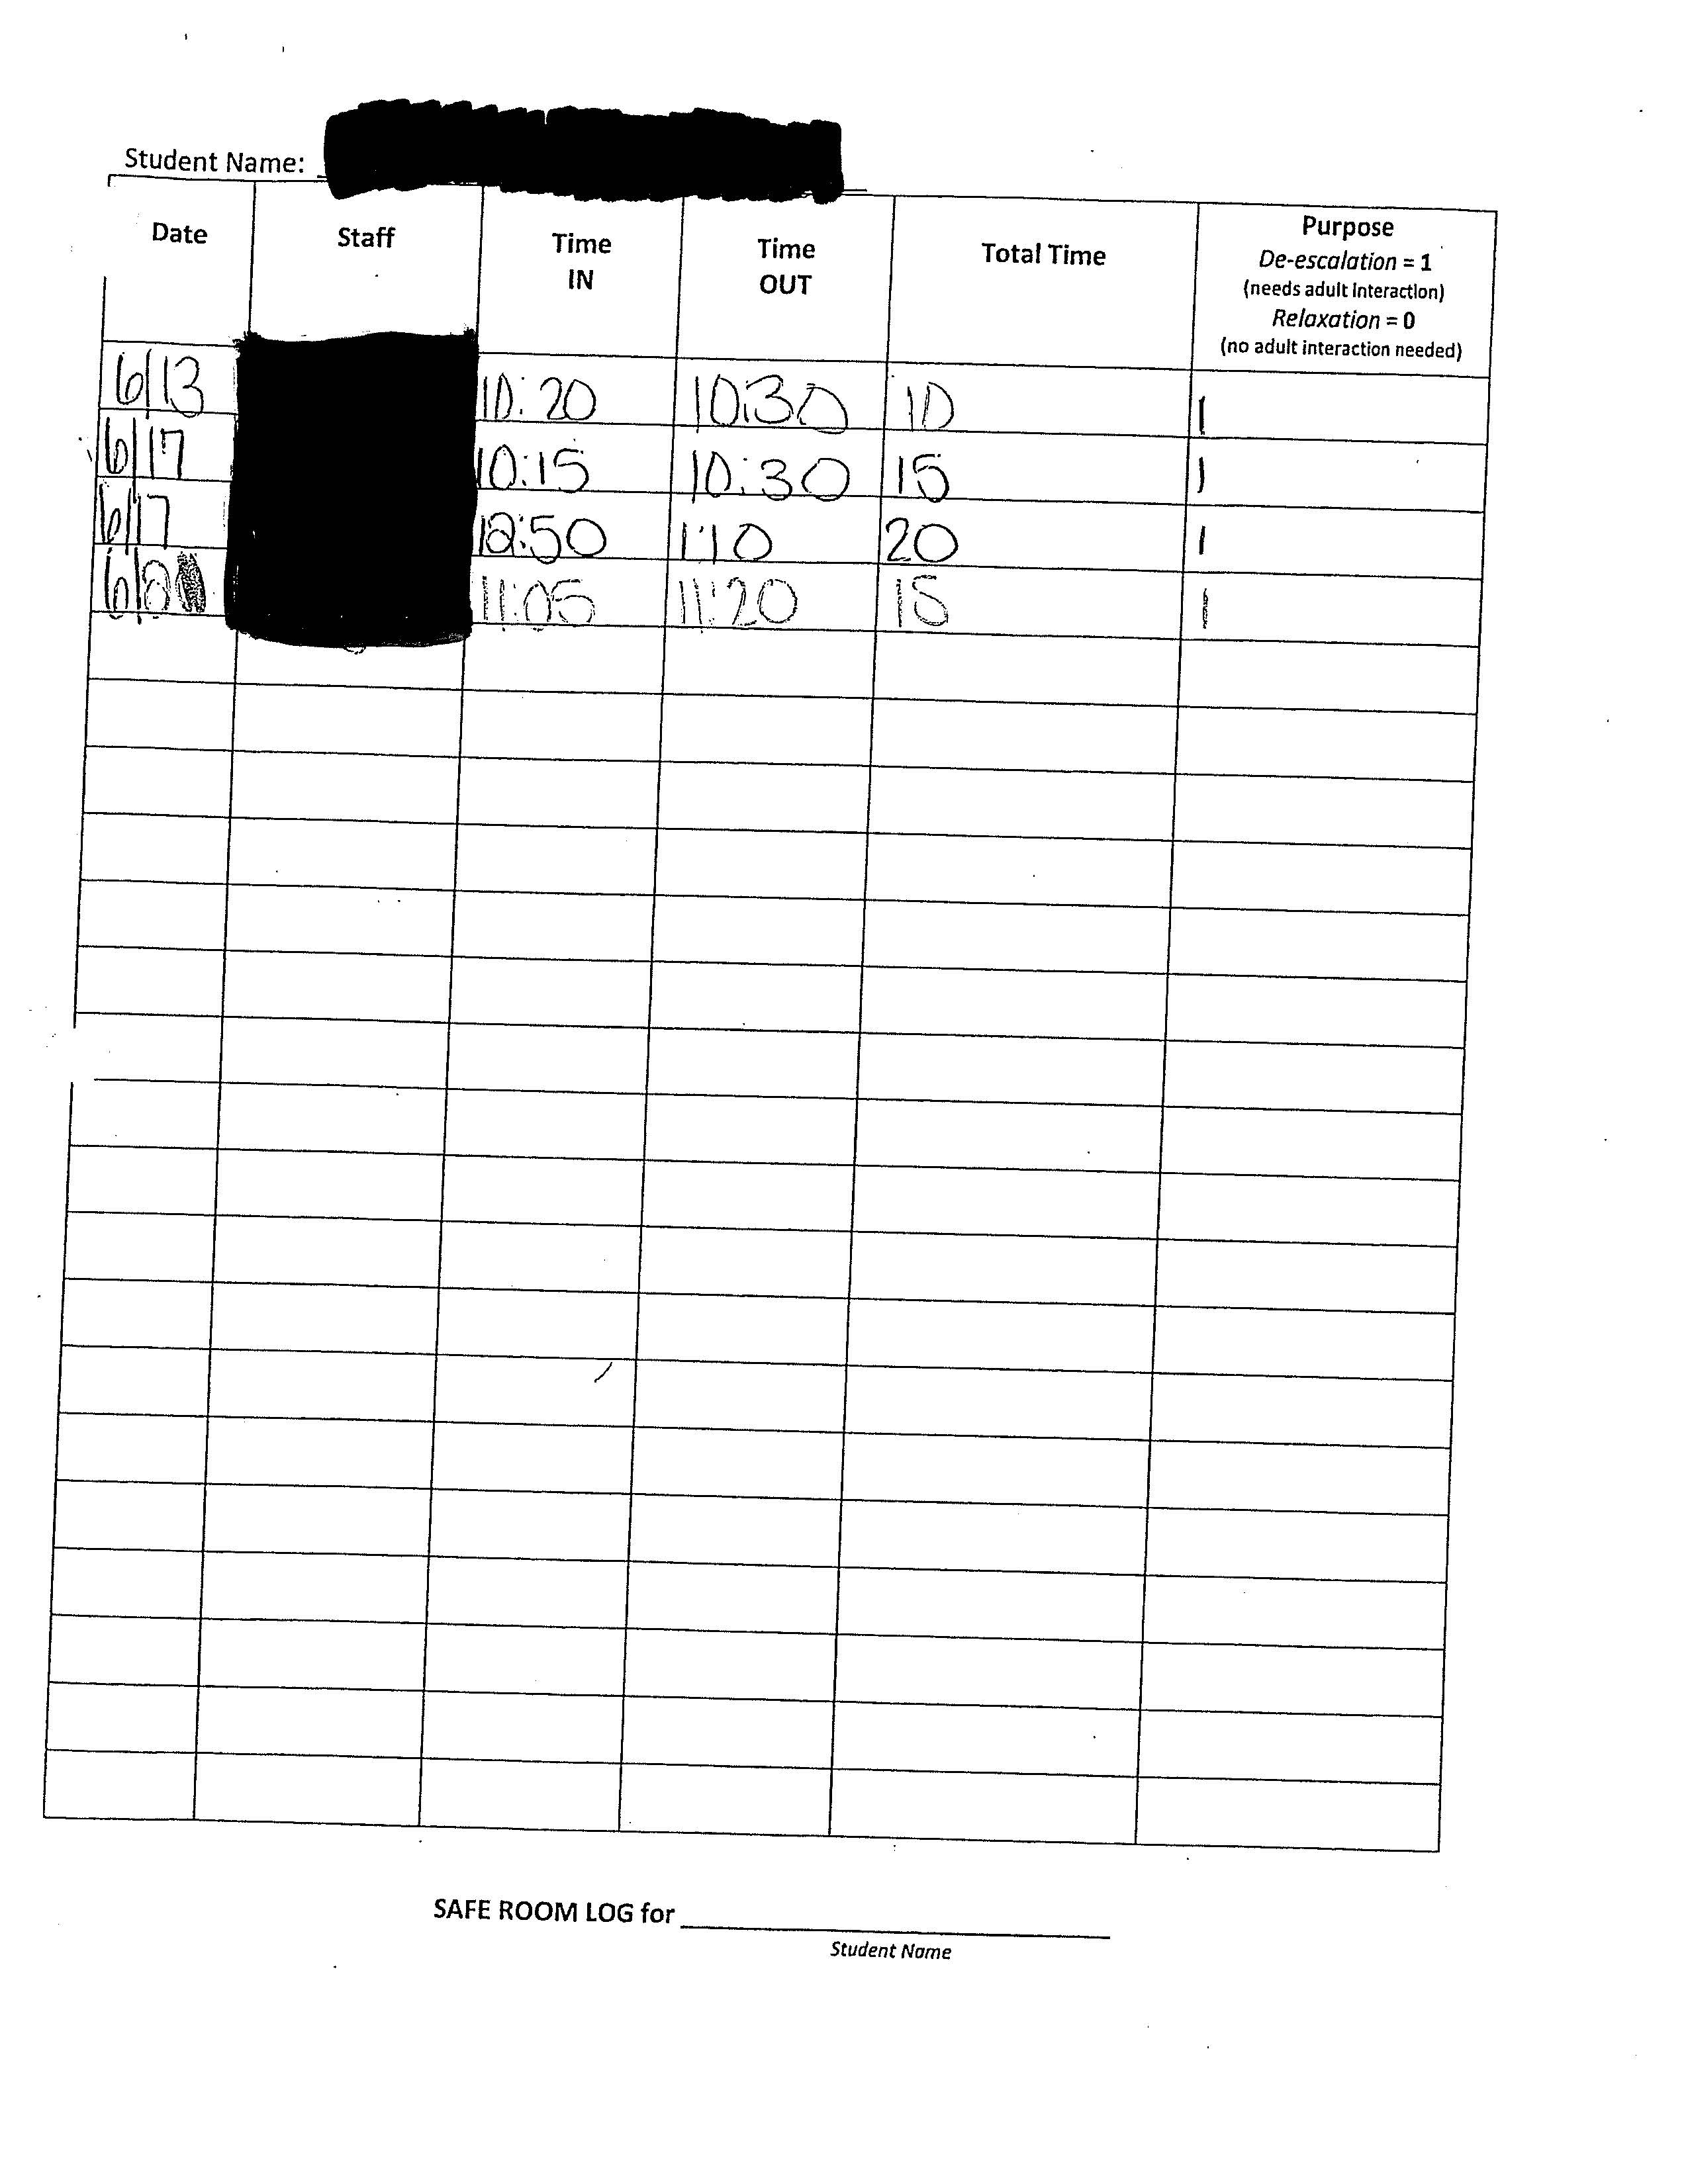 Student Name:
Date Staff Time IN Time OUT Total Time Purpose
De-escalation = 1
(needs adult interaction)
Relaxation = 0
(no adult interaction needed)
6/13 10:20 10:30 10 1
6/17 10:15 10:30 15 1
6/17 12:50 1:10 20 1
11:05 11:20 15 1
SAFE ROOM LOG for
Student Name